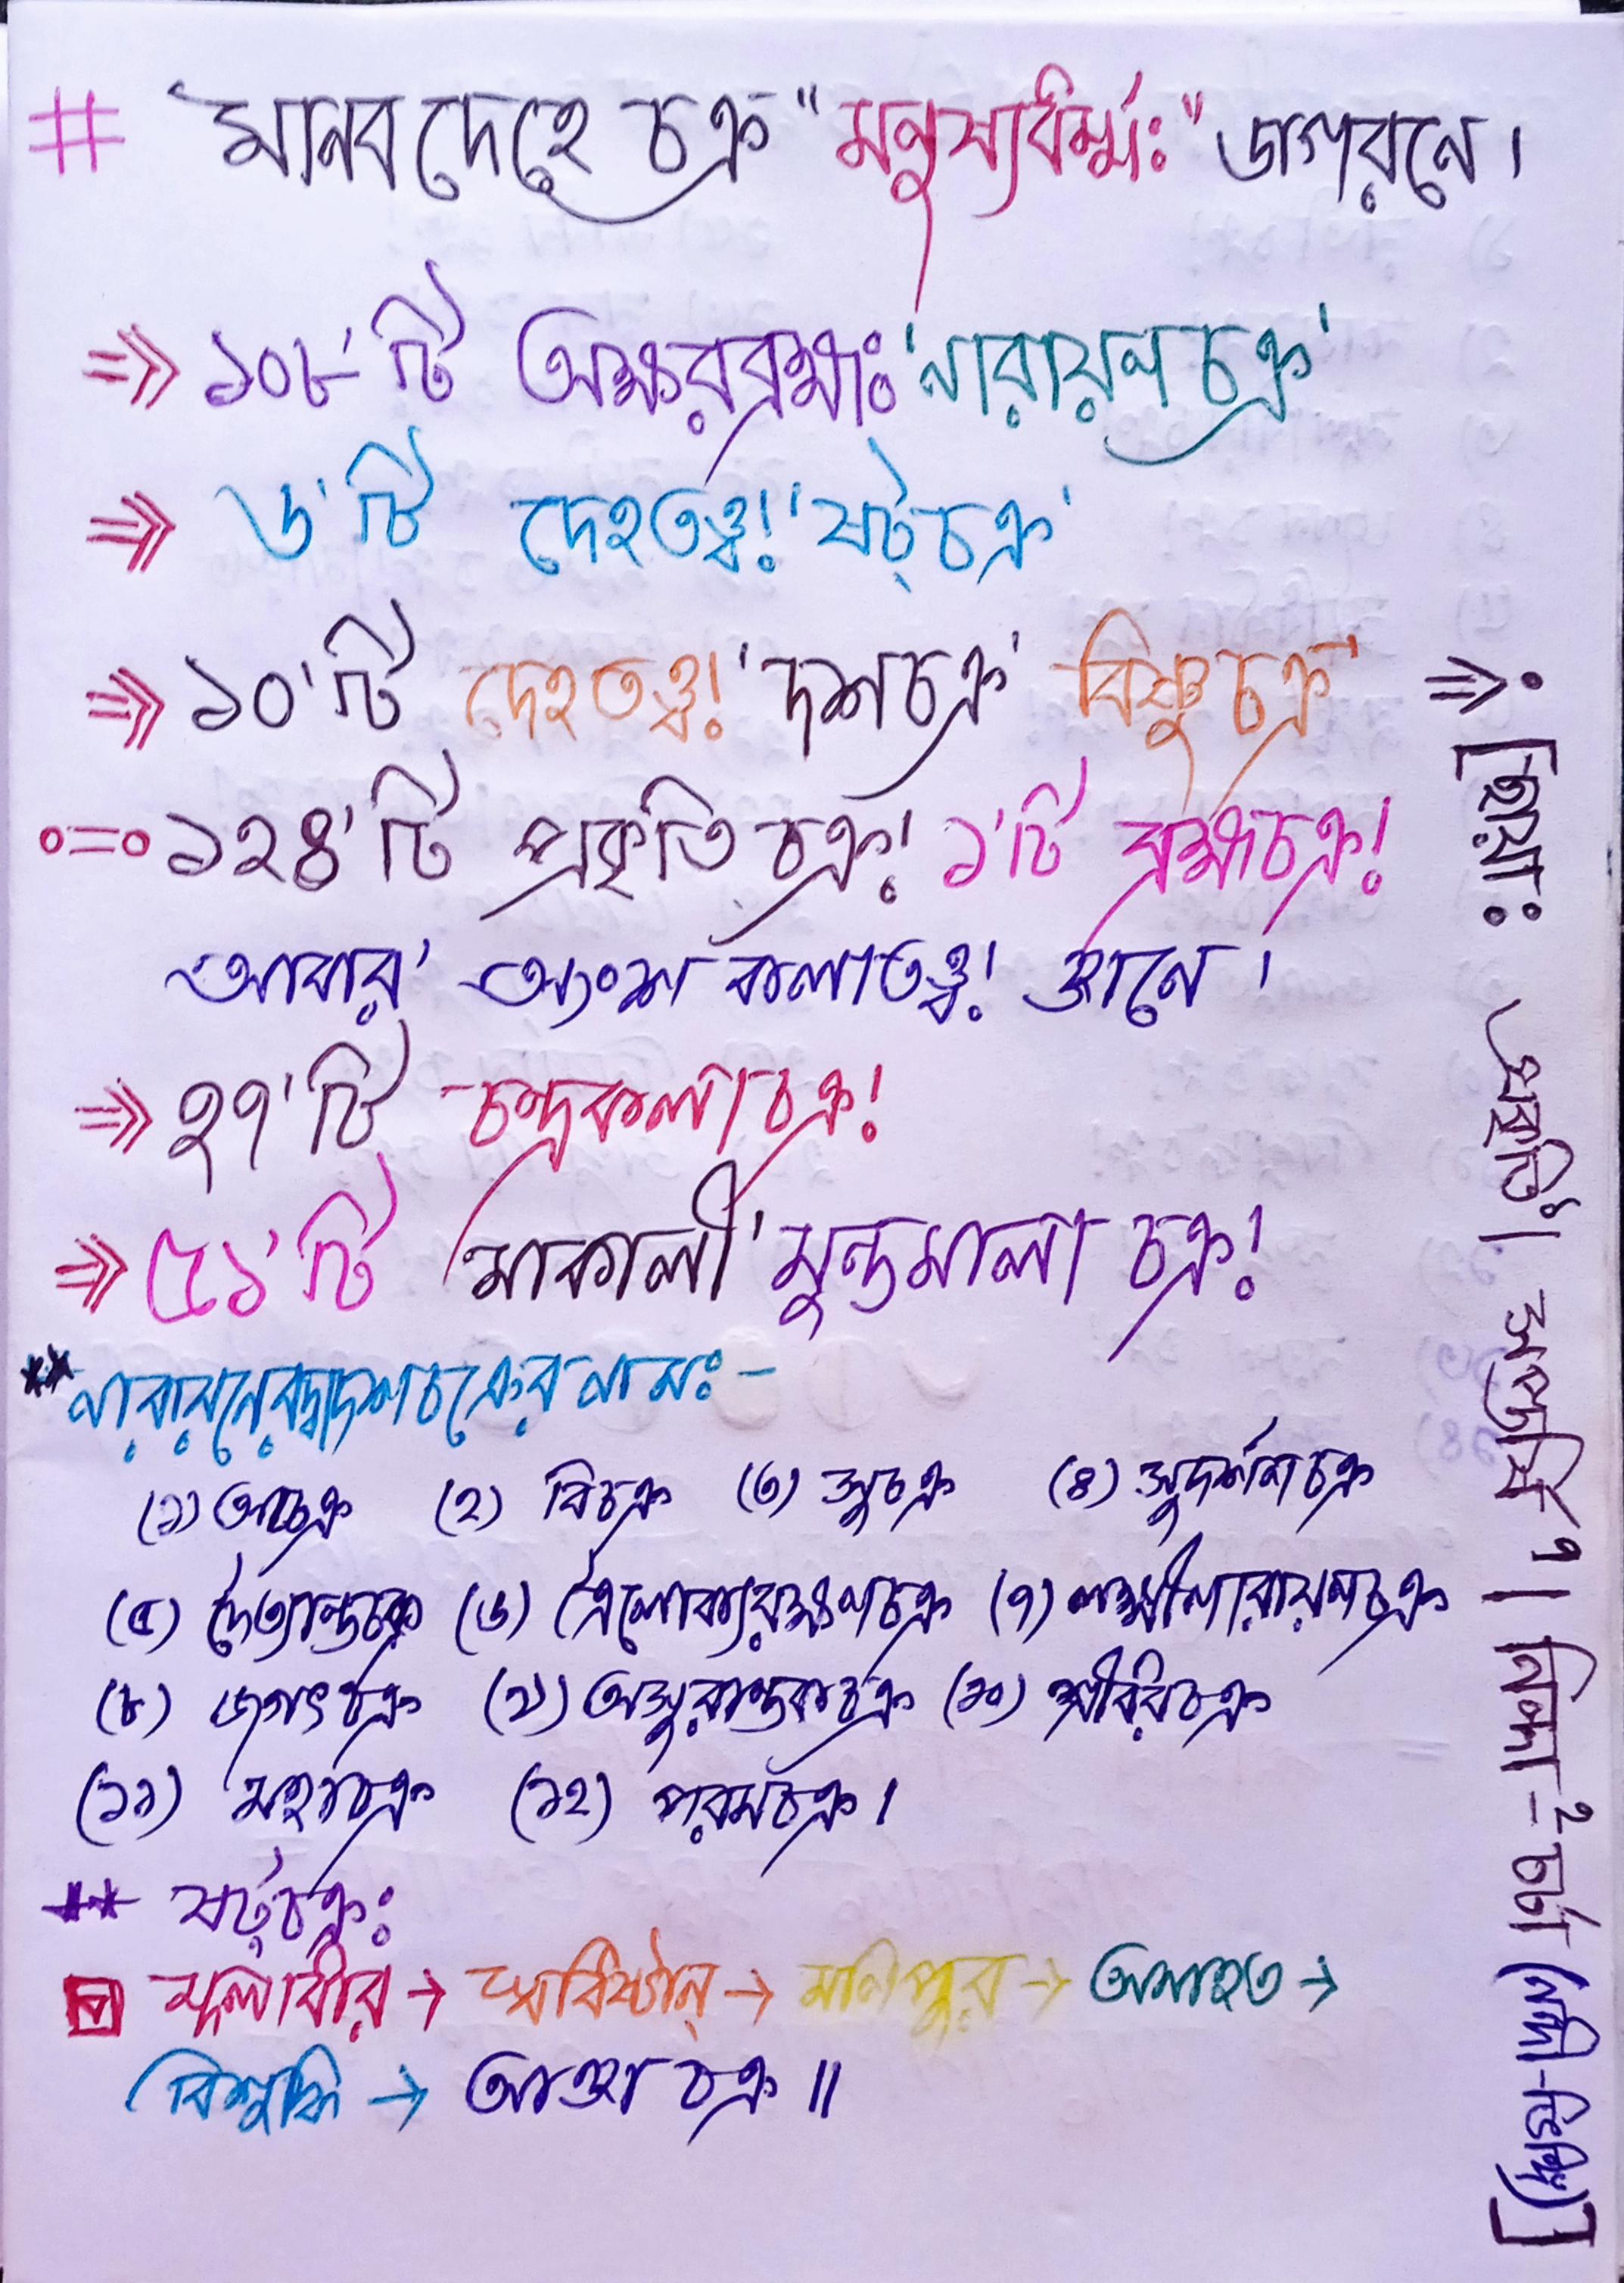 # মানব দেহে চক্র "মনুষ্যধর্ম্মঃ" জাগরনে।
⇒ ১০৮'টি অক্ষরব্রহ্মঃ 'নারায়ণ চক্র'
⇒ ৬'টি দেহতত্ত্ব! 'ষট্ চক্র'
⇒ ১০'টি দেহতত্ত্ব! 'দশচক্র' বিষ্ণুচক্র
১২৪'টি প্রকৃতি চক্র! ১'টি ব্রহ্মচক্র!
আবার' অংশ কলাতত্ত্ব! জ্ঞানে।
⇒ ২৭'টি চন্দ্রকলা চক্র!
⇒ ৫১'টি মাকালী' মুন্ডমালা চক্র!
** নারায়নের দ্বাদশ চক্রের নামঃ-
(১) আচক্র (২) বিচক্র (৩) সুচক্র (৪) সুদর্শন চক্র
(৫) দৈত্যান্তচক্র (৬) ত্রৈলোক্যরক্ষণচক্র (৭) লক্ষ্মীনারায়ণচক্র
(৮) জগৎ চক্র (৯) অসুরান্তকচক্র (১০)
(১১) মহাচক্র (১২) পরমচক্র।
** ষট্ চক্রঃ
মূলাধার → স্বাধিষ্ঠান্ → মণিপুর → অনাহত →
বিশুদ্ধি → আজ্ঞা চক্র ॥
প্রকৃতি। সপ্তর্ষি ৭।